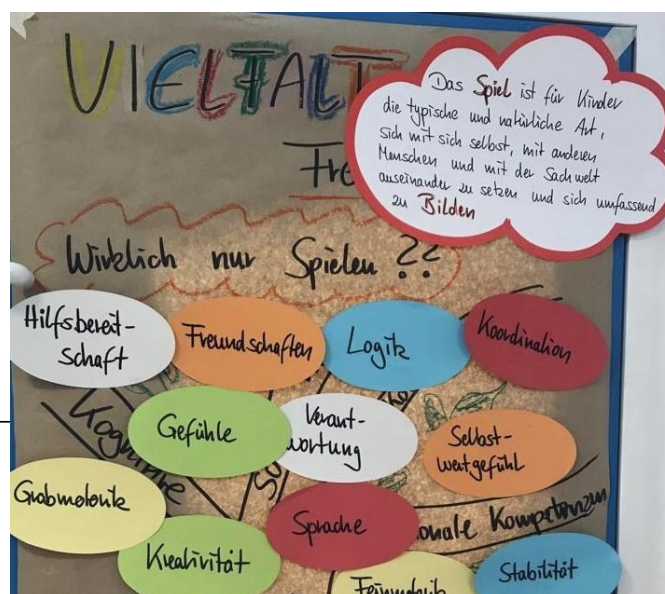 VIELFALT
Das Spiel ist für Kinder
die typische und natürliche Art,
sich mit sich selbst, mit anderen
Menschen und mit der Sachwelt
auseinander zu setzen und sich umfassend
zu Bilden
Fre
Wirklich nur Spielen ??
Hilfsbereit-
schaft
Freundschaften
Logik
Koordination
Gefühle
Verant-
wortung
Selbst-
wertgefühl
Kognitive
Grobmotorik
Sprache
onale Kompetenzen
Kreativität
Feinmotorik
Stabilität